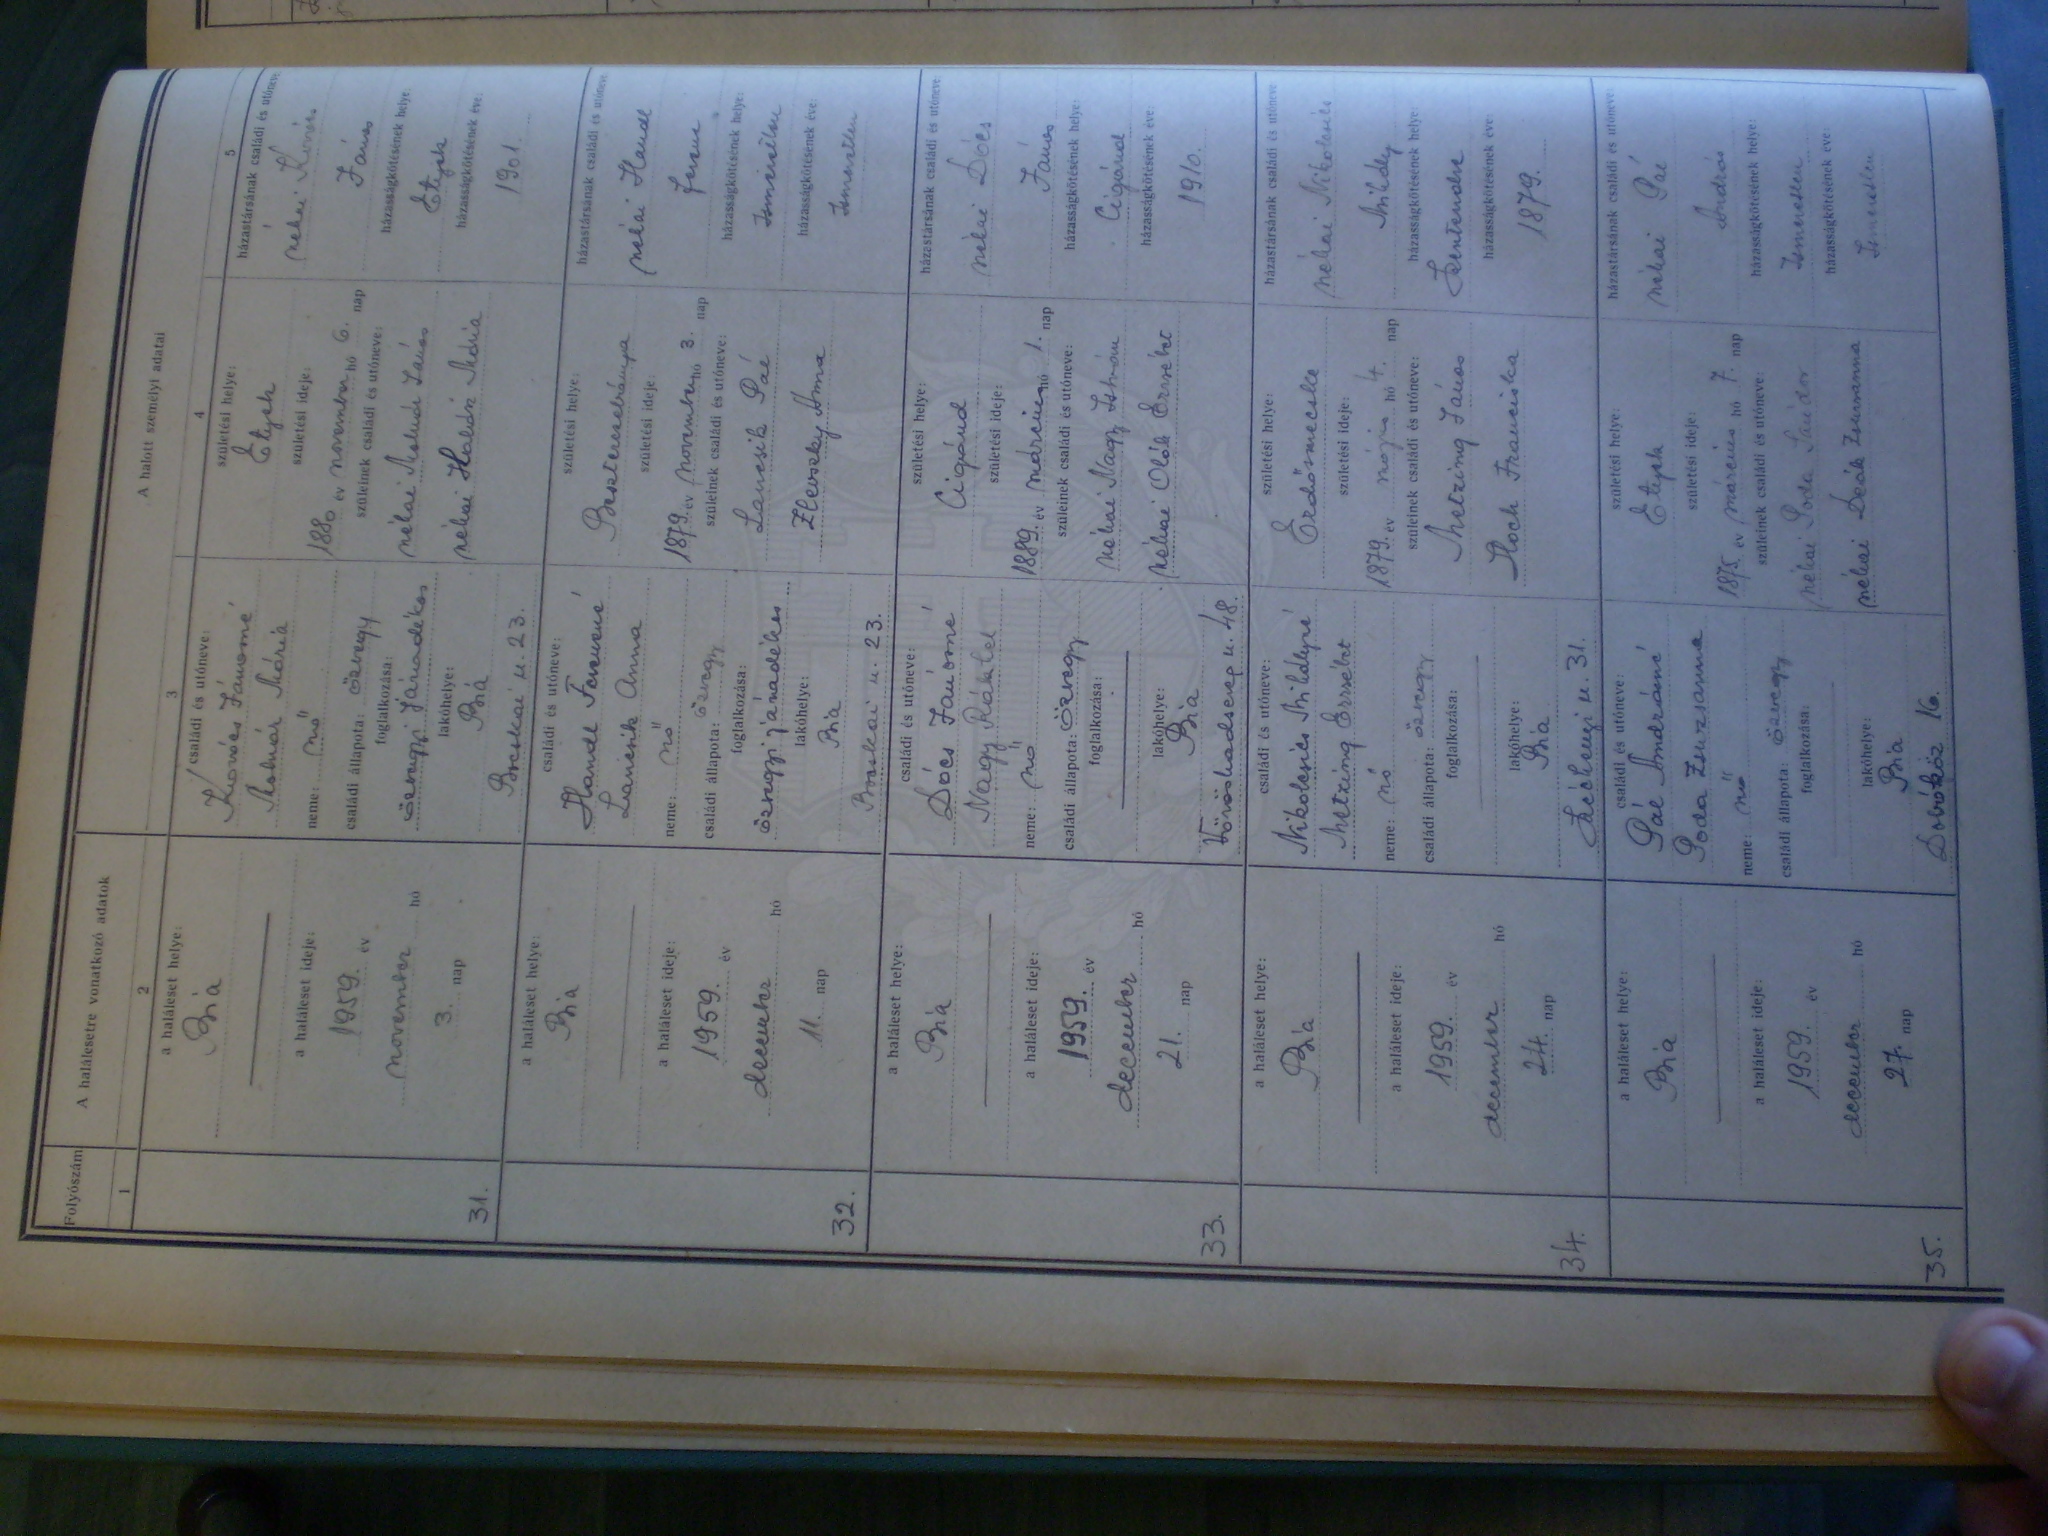 Folyószám
A halálesetre vonatkozó adatok
A halott személyi adatai
1
2
3
4
5
31.
a haláleset helye:
Bia
a haláleset ideje:
1959. év
november hó
3. nap
családi és utóneve:
Kovács Jánosné
Molnár Mária
neme: nő
családi állapota: özvegy
foglalkozása:
özvegyi járadékos
lakóhelye:
Bia
Bocskai u. 23.
születési helye:
Etyek
születési ideje:
1880. év november hó 6. nap
szüleinek családi és utóneve:
néhai Molnár János
néhai Mária
házastársának családi és utóneve:
néhai Kovács
János
házasságkötésének helye:
Etyek
házasságkötésének éve:
1901.
32.
a haláleset helye:
Bia
a haláleset ideje:
1959. év
december hó
11. nap
családi és utóneve:
Handl Ferencné
Lancsik Anna
neme: nő
családi állapota: özvegy
foglalkozása:
özvegyi járadékos
lakóhelye:
Bia
Bocskai u. 23.
születési helye:
Besztercebánya
születési ideje:
1879. év november hó 3. nap
szüleinek családi és utóneve:
Lancsik Pál
Anna
házastársának családi és utóneve:
néhai Handl
Ferenc
házasságkötésének helye:
Ismeretlen
házasságkötésének éve:
Ismeretlen
33.
a haláleset helye:
Bia
a haláleset ideje:
1959. év
december hó
21. nap
családi és utóneve:
Dócs Jánosné
Nagy Ráhel
neme: nő
családi állapota: özvegy
foglalkozása:
lakóhelye:
Bia
Vöröshadsereg u. 48.
születési helye:
Cigánd
születési ideje:
1889. év március hó 1. nap
szüleinek családi és utóneve:
néhai Nagy István
néhai Oláh Erzsébet
házastársának családi és utóneve:
néhai Dócs
János
házasságkötésének helye:
Cigánd
házasságkötésének éve:
1910.
34.
a haláleset helye:
Bia
a haláleset ideje:
1959. év
december hó
24. nap
családi és utóneve:
Nikolcsics Mihályné
Metzing Erzsébet
neme: nő
családi állapota: özvegy
foglalkozása:
lakóhelye:
Bia
Széchenyi u. 31.
születési helye:
Erdősmecske
születési ideje:
1879. év május hó 4. nap
szüleinek családi és utóneve:
Metzing János
Hoch Franciska
házastársának családi és utóneve:
néhai Nikolcsics
Mihály
házasságkötésének helye:
Szentendre
házasságkötésének éve:
1879.
35.
a haláleset helye:
Bia
a haláleset ideje:
1959. év
december hó
27. nap
családi és utóneve:
Pál Andrásné
Poda Zsuzsanna
neme: nő
családi állapota: özvegy
foglalkozása:
lakóhelye:
Bia
Dobóköz 16.
születési helye:
Etyek
születési ideje:
1875. év március hó 7. nap
szüleinek családi és utóneve:
néhai Poda Sándor
néhai Deák Zsuzsanna
házastársának családi és utóneve:
néhai Pál
András
házasságkötésének helye:
Ismeretlen
házasságkötésének éve:
Ismeretlen